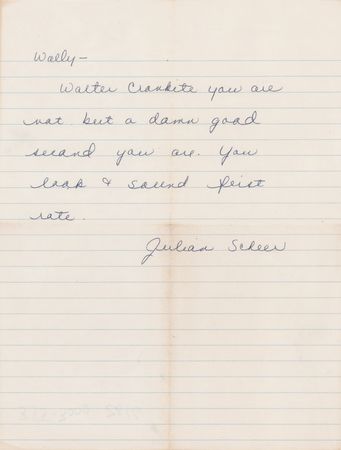 Wally—
Walter Cronkite you are
not but a damn good
second you are. You
look & sound first
rate.
Julian Scheer